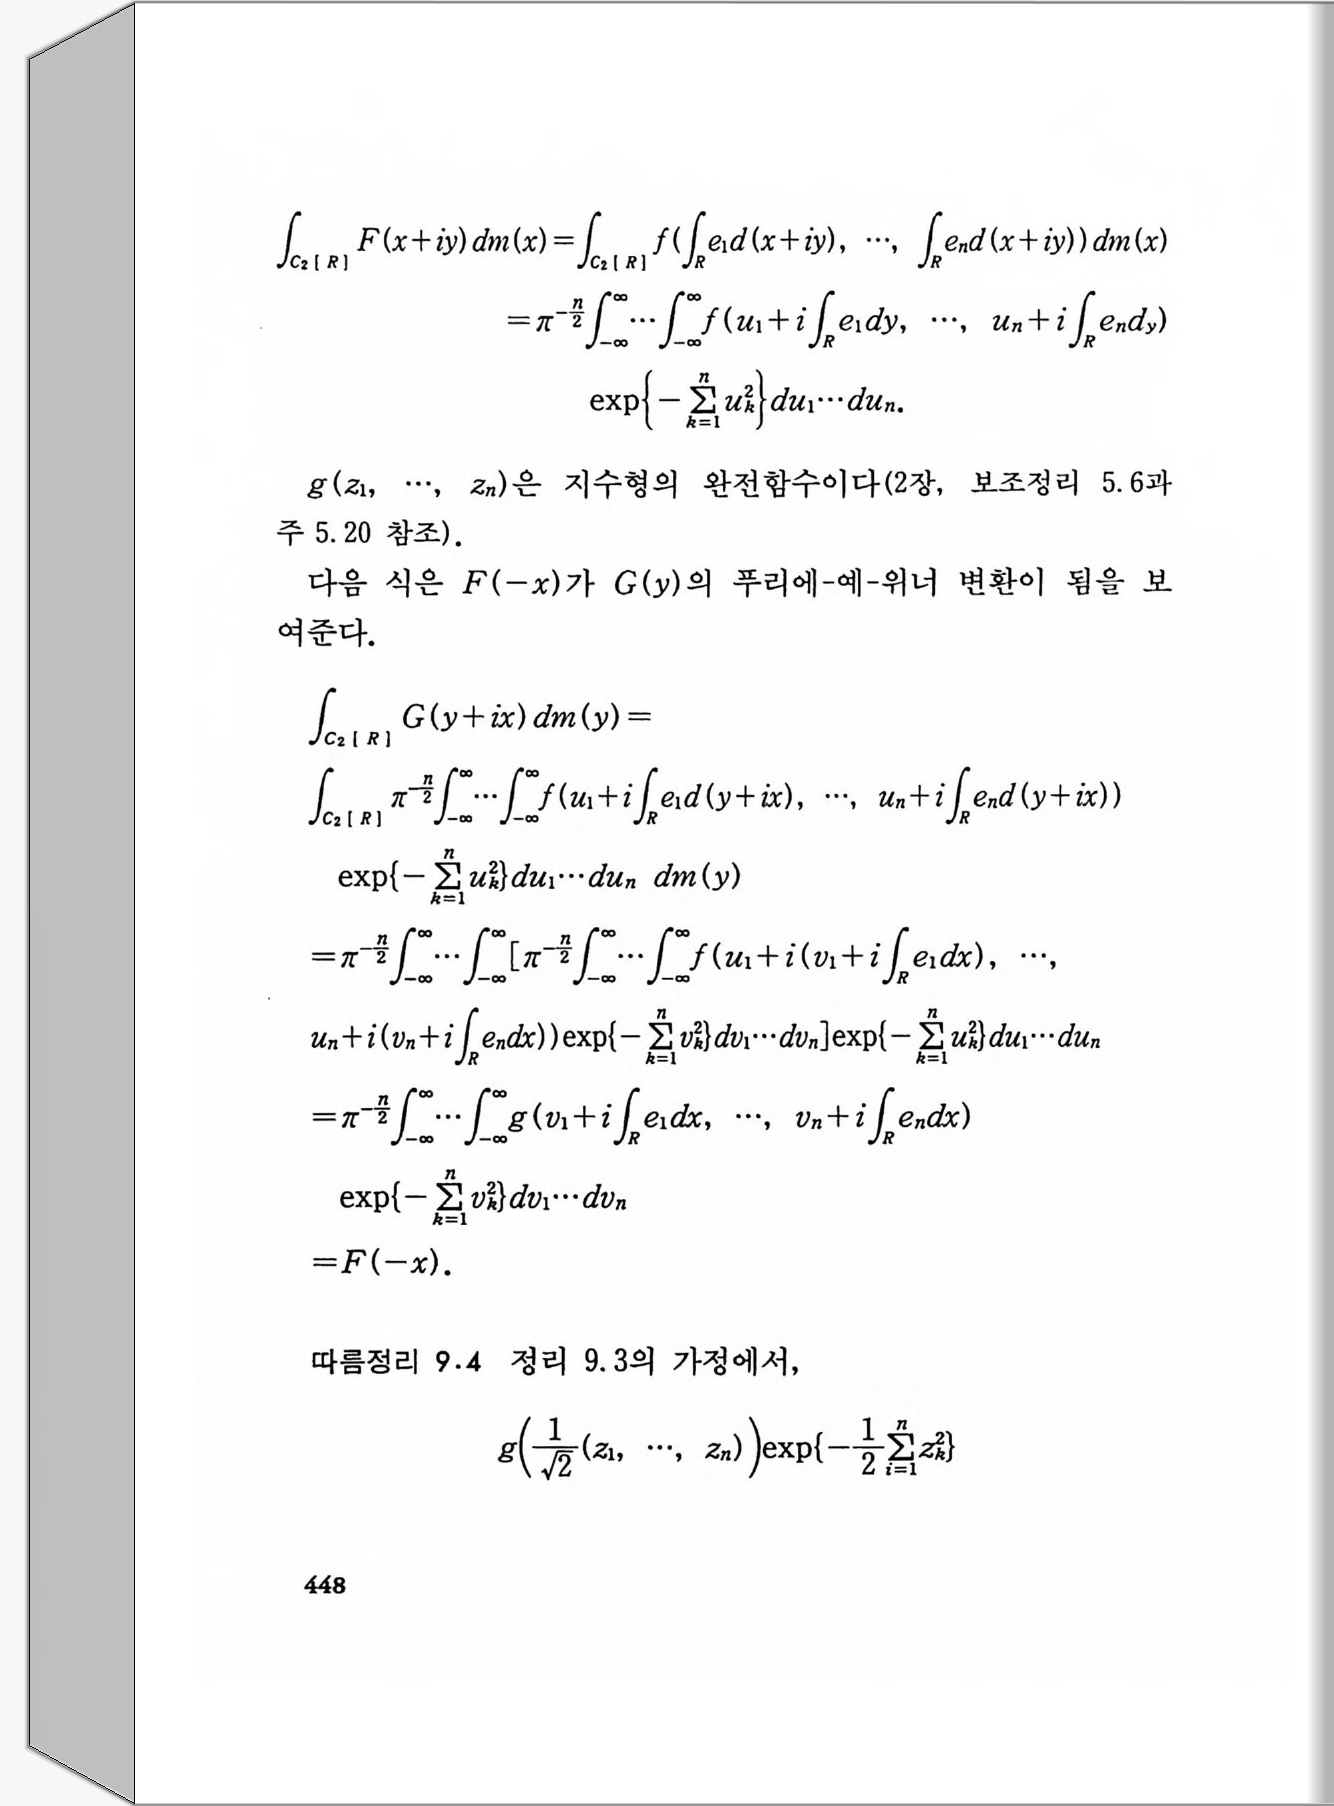 ∫_{C₂[R]} F(x+iy) dm(x) = ∫_{C₂[R]} f(∫_R e₁d(x+iy), ⋯, ∫_R eₙd(x+iy)) dm(x)
=π^{-n/2} ∫_{-∞}^{∞} ⋯ ∫_{-∞}^{∞} f(u₁+i∫_R e₁dy, ⋯, uₙ+i∫_R eₙd_y)
exp{-∑_{k=1}^{n} u_k^2} du₁⋯duₙ.
g(z₁, ⋯, zₙ)은 지수형의 완전함수이다(2장, 보조정리 5.6과
주 5.20 참조).
다음 식은 F(-x)가 G(y)의 푸리에-예-위너 변환이 됨을 보
여준다.
∫_{C₂[R]} G(y+ix) dm(y)=
∫_{C₂[R]} π^{-n/2} ∫_{-∞}^{∞} ⋯ ∫_{-∞}^{∞} f(u₁+i∫_R e₁d(y+ix), ⋯, uₙ+i∫_R eₙd(y+ix))
exp{-∑_{k=1}^{n} u_k^2} du₁⋯duₙ dm(y)
=π^{-n/2} ∫_{-∞}^{∞} ⋯ ∫_{-∞}^{∞} [π^{-n/2} ∫_{-∞}^{∞} ⋯ ∫_{-∞}^{∞} f(u₁+i(v₁+i∫_R e₁dx), ⋯,
uₙ+i(vₙ+i∫_R eₙdx))exp{-∑_{k=1}^{n} v_k^2} dv₁⋯dvₙ]exp{-∑_{k=1}^{n} u_k^2} du₁⋯duₙ
=π^{-n/2} ∫_{-∞}^{∞} ⋯ ∫_{-∞}^{∞} g(v₁+i∫_R e₁dx, ⋯, vₙ+i∫_R eₙdx)
exp{-∑_{k=1}^{n} v_k^2} dv₁⋯dvₙ
=F(-x).
따름정리 9.4 정리 9.3의 가정에서,
g(\frac{1}{√2}(z₁, ⋯, zₙ))exp{-\frac{1}{2}∑_{i=1}^{n} z_k^2}
448